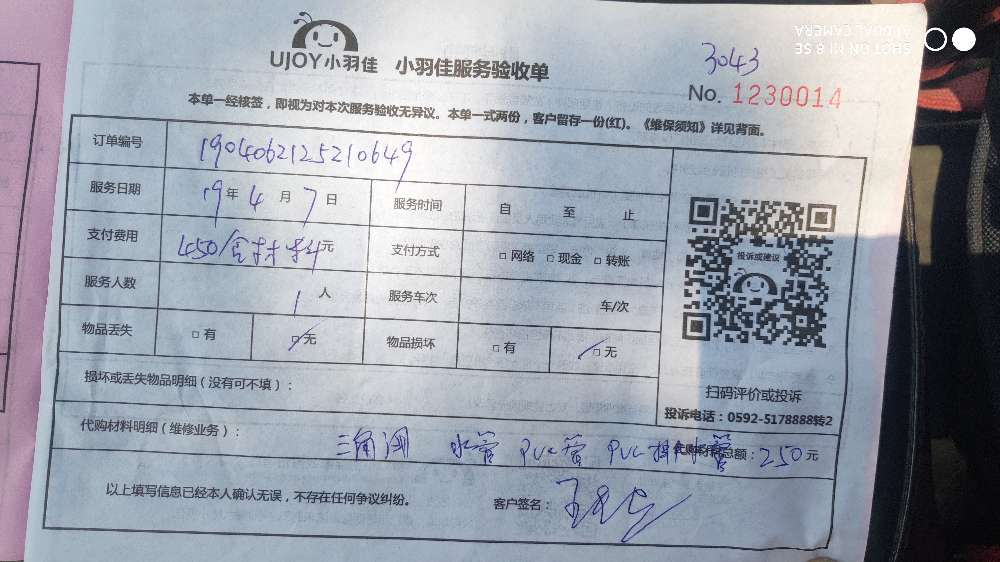 SHOT ON MI 8 SE
AI DUAL CAMERA
UJOY小羽佳 小羽佳服务验收单
3043
No. 1230014
本单一经核签，即视为对本次服务验收无异议。本单一式两份，客户留存一份(红)。《维保须知》详见背面。
订单编号 1904062125210649
服务日期 19年 4 月 7 日 服务时间 自 至 止
支付费用 450/含材料元 支付方式 □ 网络 □ 现金 □ 转账
服务人数 1 人 服务车次 车/次
物品丢失 □ 有 □ 无 物品损坏 □ 有 □ 无
投诉或建议
扫码评价或投诉
投诉电话：0592-5178888转2
损坏或丢失物品明细（没有可不填）：
代购材料明细（维修业务）： 三角阀 水管 PVC管 PVC 管 总额：250元
以上填写信息已经本人确认无误，不存在任何争议纠纷。 客户签名：